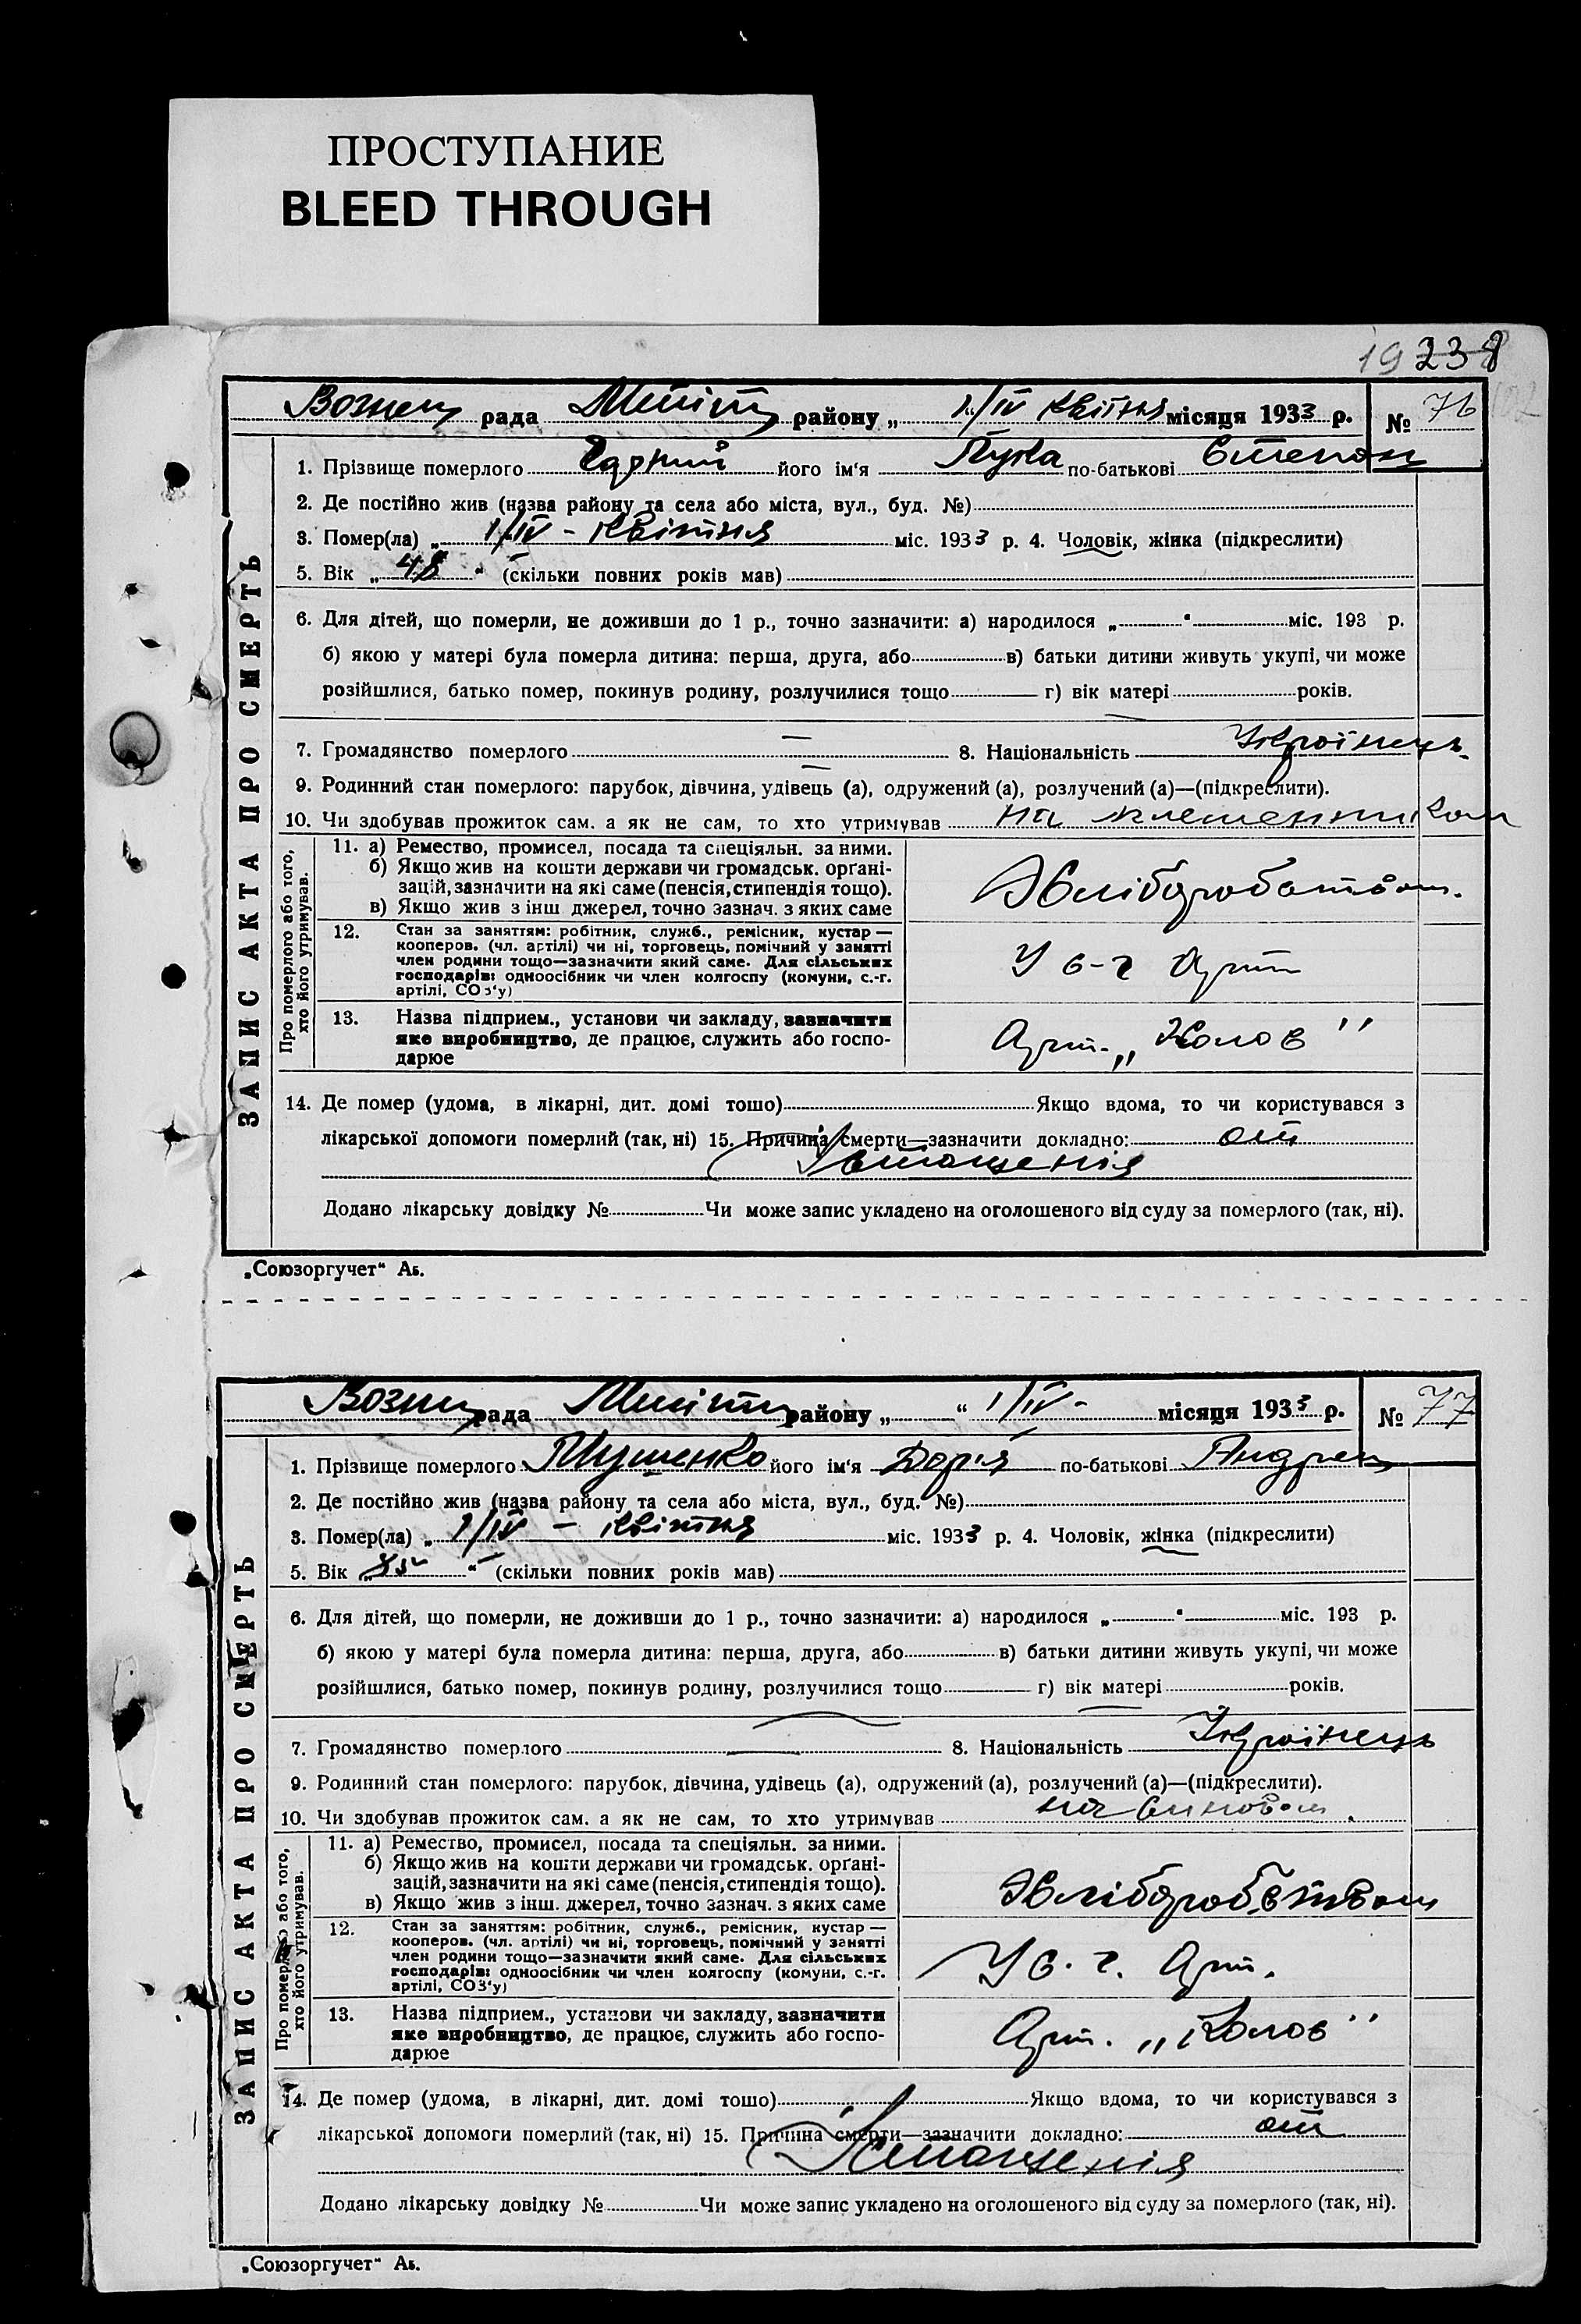 ПРОСТУПАНИЕ
BLEED THROUGH
19 238
рада району „ 1/IV Квітня місяця 1933 р. № 76
1. Прізвище померлого його ім‘я Лука по-батькові Степан
2. Де постійно жив (назва району та села або міста, вул., буд. №)
3. Помер(ла) „ 1/IV - Квітня міс. 1933 р. 4. Чоловік, жінка (підкреслити)
5. Вік „ 48 “ (скільки повних років мав)
6. Для дітей, що померли, не доживши до 1 р., точно зазначити: а) народилося „ “ міс. 193 р.
б) якою у матері була померла дитина: перша, друга, або в) батьки дитини живуть укупі, чи може
розійшлися, батько помер, покинув родину, розлучилися тощо г) вік матері років.
7. Громадянство померлого — 8. Національність Українець
9. Родинний стан померлого: парубок, дівчина, удівець (а), одружений (а), розлучений (а)—(підкреслити).
10. Чи здобував прожиток сам. а як не сам, то хто утримував на
11. а) Ремество, промисел, посада та спеціяльн. за ними.
б) Якщо жив на кошти держави чи громадськ. орґані-
зацій, зазначити на які саме (пенсія, стипендія тощо).
в) Якщо жив з інш джерел, точно зазнач. з яких саме
Хліборобством.
12. Стан за заняттям: робітник, служб., ремісник, кустар —
кооперов. (чл. артілі) чи ні, торговець, помічний у занятті
член родини тощо—зазначити який саме. Для сільських
господарів: одноосібник чи член колгоспу (комуни, с.-г.
артілі, СОЗ‘у)
У с-г Арт
13. Назва підприєм., установи чи закладу, зазначити
яке виробництво, де працює, служить або госпо-
дарює
Арт. „Колос"
14. Де помер (удома, в лікарні, дит. домі тощо) Якщо вдома, то чи користувався з
лікарської допомоги померлий (так, ні) 15. Причина смерти—зазначити докладно: от
Істощенія
Додано лікарську довідку № Чи може запис укладено на оголошеного від суду за померлого (так, ні).
ЗАПИС АКТА ПРО СМЕРТЬ
Про померлого або того,
хто його утримував.
„Союзоргучет“ Аб.
рада району „ “ 1/IV - місяця 1933 р. № 77
1. Прізвище померлого його ім‘я Дарія по-батькові Андреи
2. Де постійно жив (назва району та села або міста, вул., буд. №)
3. Помер(ла) „ 1/IV — Квітня міс. 1933 р. 4. Чоловік, жінка (підкреслити)
5. Вік „ “ (скільки повних років мав)
6. Для дітей, що померли, не доживши до 1 р., точно зазначити: а) народилося „ “ міс. 193 р.
б) якою у матері була померла дитина: перша, друга, або в) батьки дитини живуть укупі, чи може
розійшлися, батько помер, покинув родину, розлучилися тощо г) вік матері років.
7. Громадянство померлого — 8. Національність Українець
9. Родинний стан померлого: парубок, дівчина, удівець (а), одружений (а), розлучений (а)—(підкреслити).
10. Чи здобував прожиток сам. а як не сам, то хто утримував на
11. а) Ремество, промисел, посада та спеціяльн. за ними.
б) Якщо жив на кошти держави чи громадськ. орґані-
зацій, зазначити на які саме (пенсія, стипендія тощо).
в) Якщо жив з інш. джерел, точно зазнач. з яких саме
Хліборобством
12. Стан за заняттям: робітник, служб., ремісник, кустар —
кооперов. (чл. артілі) чи ні, торговець, помічний у занятті
член родини тощо—зазначити який саме. Для сільських
господарів: одноосібник чи член колгоспу (комуни, с.-г.
артілі, СОЗ‘у)
У с. г. Арт.
13. Назва підприєм., установи чи закладу, зазначити
яке виробництво, де працює, служить або госпо-
дарює
Арт. „Колос"
14. Де помер (удома, в лікарні, дит. домі тощо) Якщо вдома, то чи користувався з
лікарської допомоги померлий (так, ні) 15. Причина смерти—зазначити докладно: от
Істощенія
Додано лікарську довідку № Чи може запис укладено на оголошеного від суду за померлого (так, ні).
ЗАПИС АКТА ПРО СМЕРТЬ
Про померлого або того,
хто його утримував.
„Союзоргучет“ Аб.